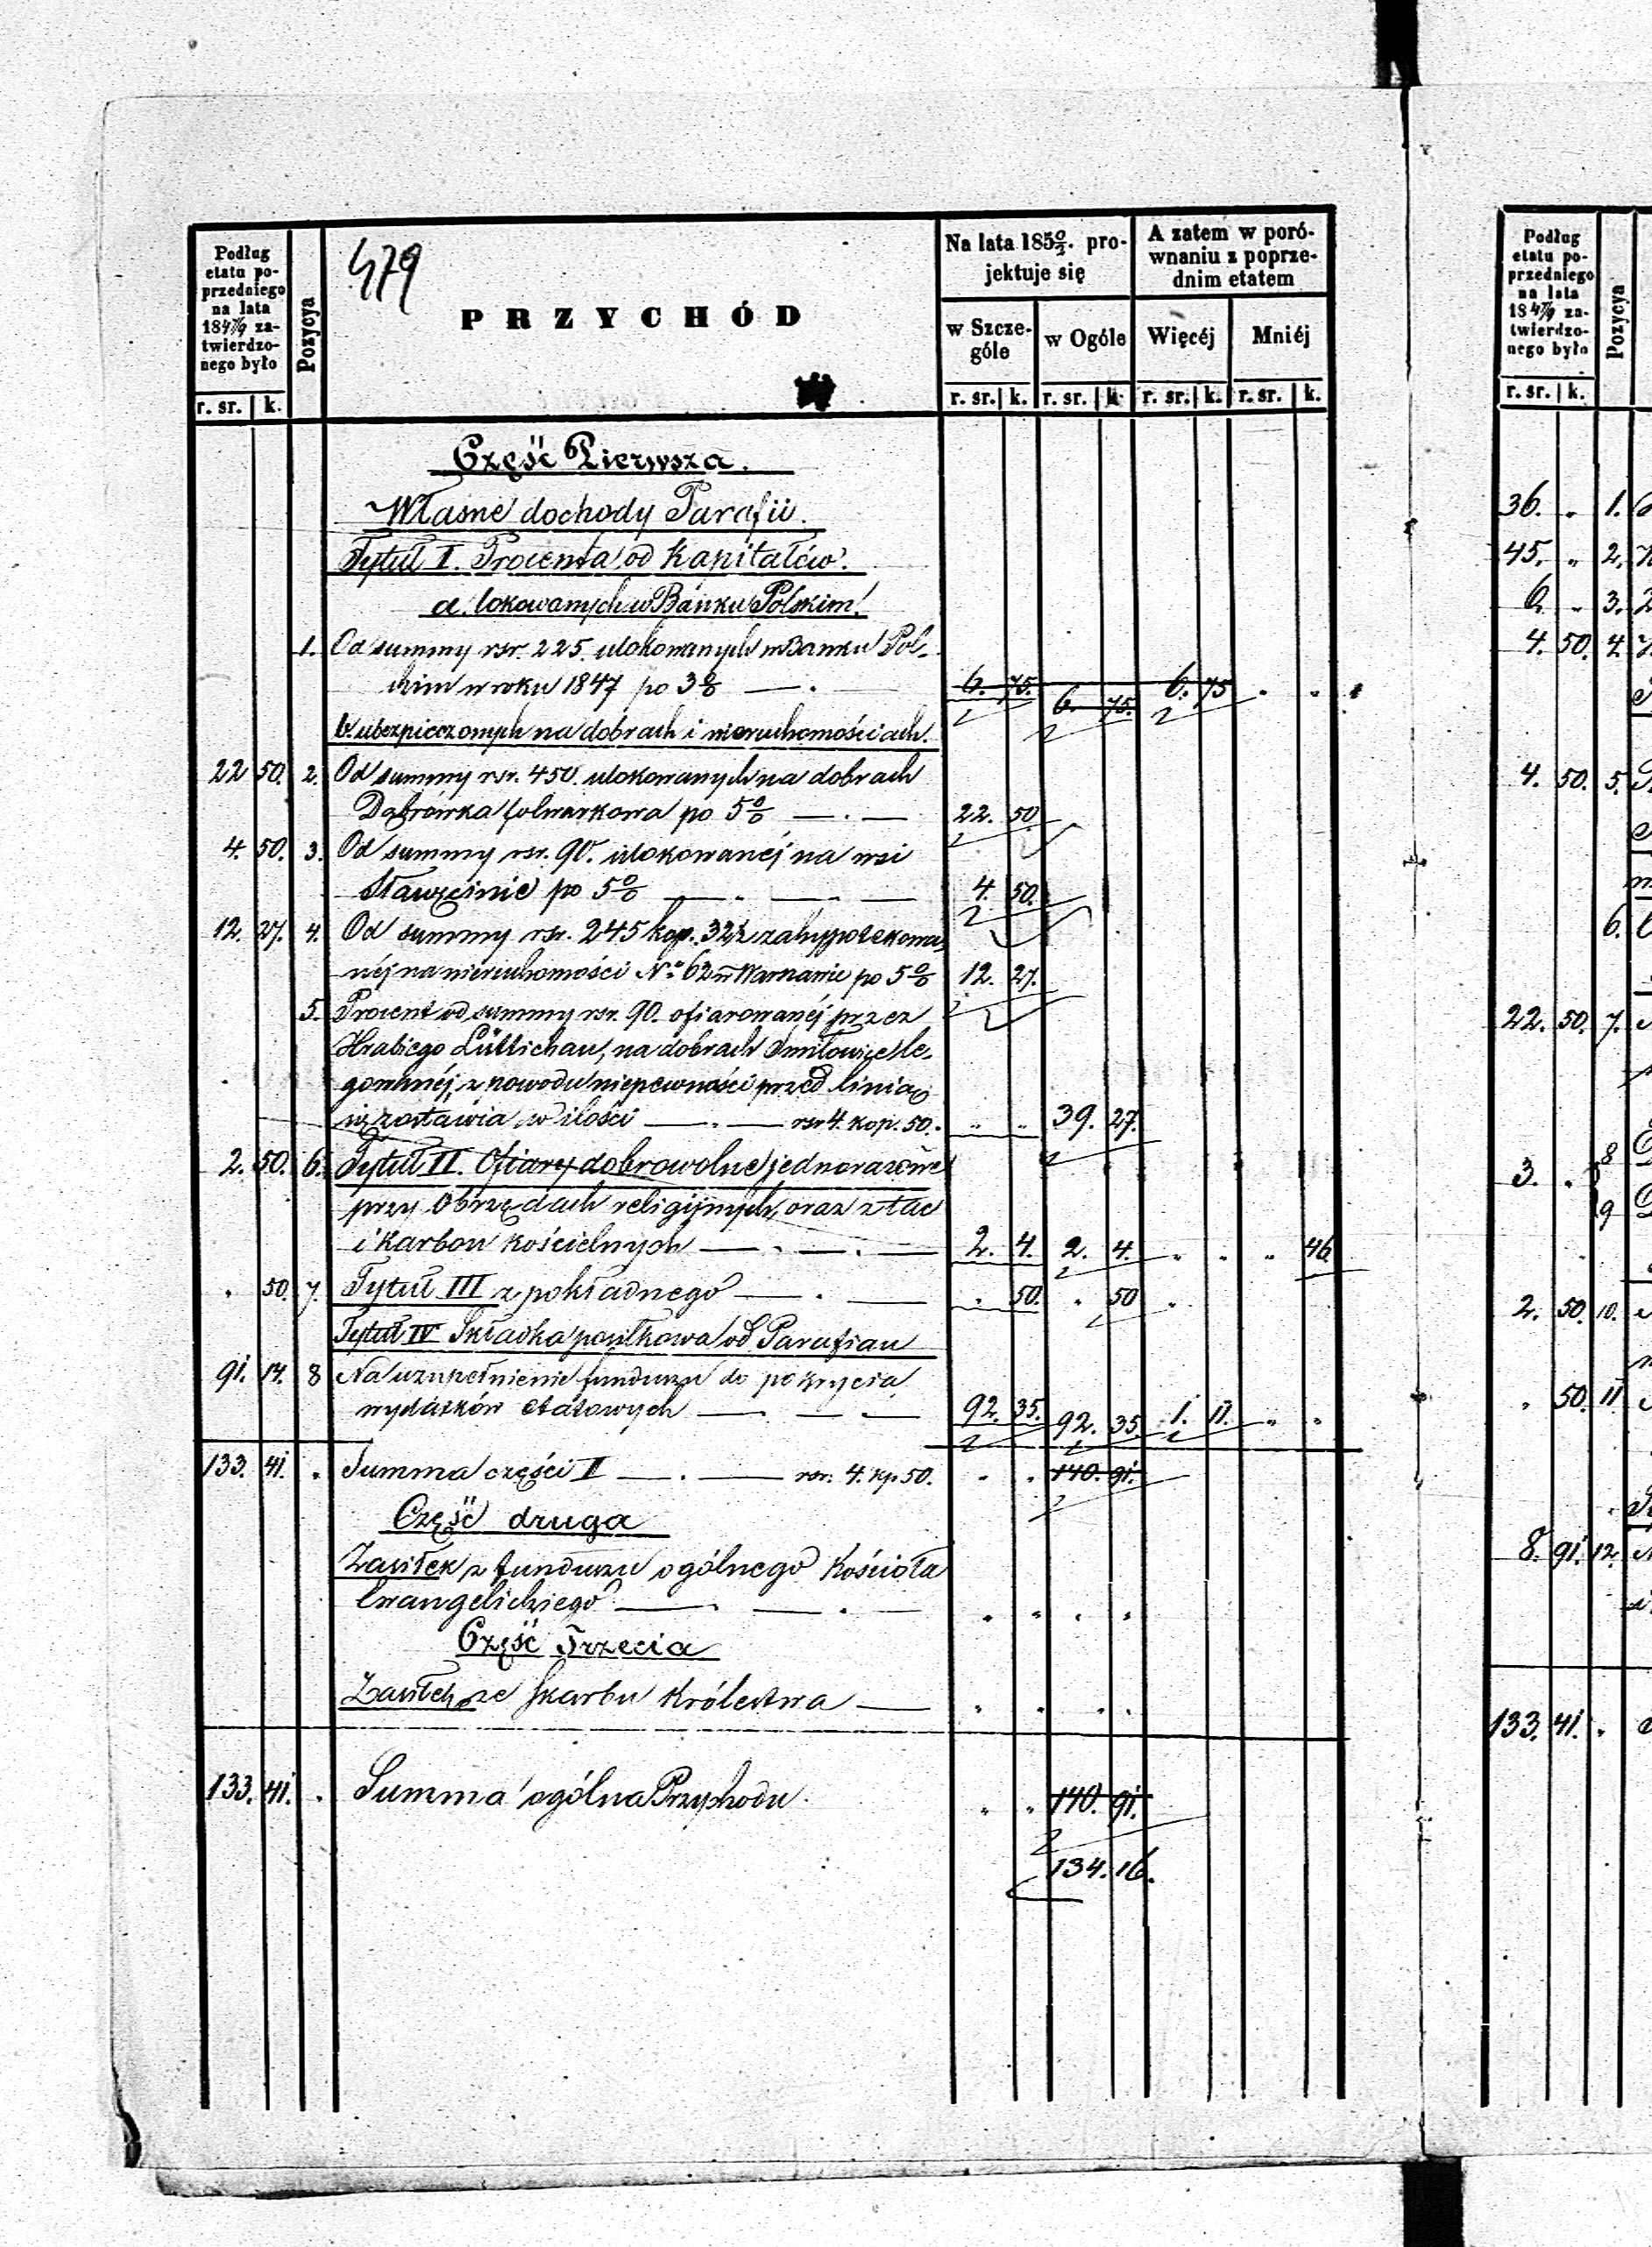 479
Podług etatu poprzedniego na lata 1847/9 zatwierdzonego było
Pozycya
PRZYCHÓD
Na lata 1850/2. projektuje się
A zatem w porównaniu z poprzednim etatem
w Szczególe
w Ogóle
Więcéj
Mniéj
r. sr. k. r. sr. k. r. sr. k. r. sr. k. r. sr. k.
Część Pierwsza.
Własne dochody Parafii.
Tytuł I. Procenta od Kapitałów.
a. lokowanych w Banku Polskim.
1. Od summy rsr. 225. ulokowanych w Banku Pol-
skim w roku 1847 po 3% 6. 75. 6. 75. 6. 75 " "
b. ubezpieczonych na dobrach i nieruchomościach.
22 50. 2. Od summy rsr. 450. ulokowanych na dobrach
Dąbrówka folwarkowa po 5% 22. 50
4. 50. 3. Od summy rsr. 90. ulokowanéj na wsi
Sławęcinie po 5% 4. 50.
12. 27. 4. Od summy rsr. 245 kop. 32½ zahypotekowa-
néj na nieruchomości No 62 w Warnawie po 5% 12. 27.
5. Procent od summy rsr. 90. ofiarowanéj przez
Hrabiego Lüttichau, na dobrach Smiłowice le-
gowanéj, z powodu niepewności przed linią
się zostawia, w ilości rsr 4. kop. 50. " " 39. 27.
2. 50. 6. Tytuł II. Ofiary dobrowolne jednorazowe
przy Obrzędach religijnych, oraz z tac
i Karbon kościelnych 2. 4. 2. 4. " " " 46
" 50. 7. Tytuł III z pokładnego " 50. " 50 "
Tytuł IV Składka posiłkowa od Parafian
91. 14. 8 Na uzupełnienie funduszu do pokrycia
wydatków etatowych 92. 35. 92. 35. 1. 11. " "
133. 41. " Summa części I rsr. 4. kp 50. " " 140. 91.
Część druga
Zasiłek z funduszu ogólnego Kościoła
Ewangelickiego " " " "
Część Trzecia
Zasiłek ze Skarbu Królestwa " " " "
133. 41. " Summa ogólna Przychodu. " " 140. 91.
134. 16.
Podług etatu poprzedniego na lata 1847/9 zatwierdzonego było
Pozycya
r. sr. k.
36. " 1.
45. " 2.
6. " 3.
4. 50. 4.
4. 50. 5.
6.
22. 50. 7.
8
3. "
9
2. 50. 10.
" 50. 11
8. 91. 12
133. 41. "